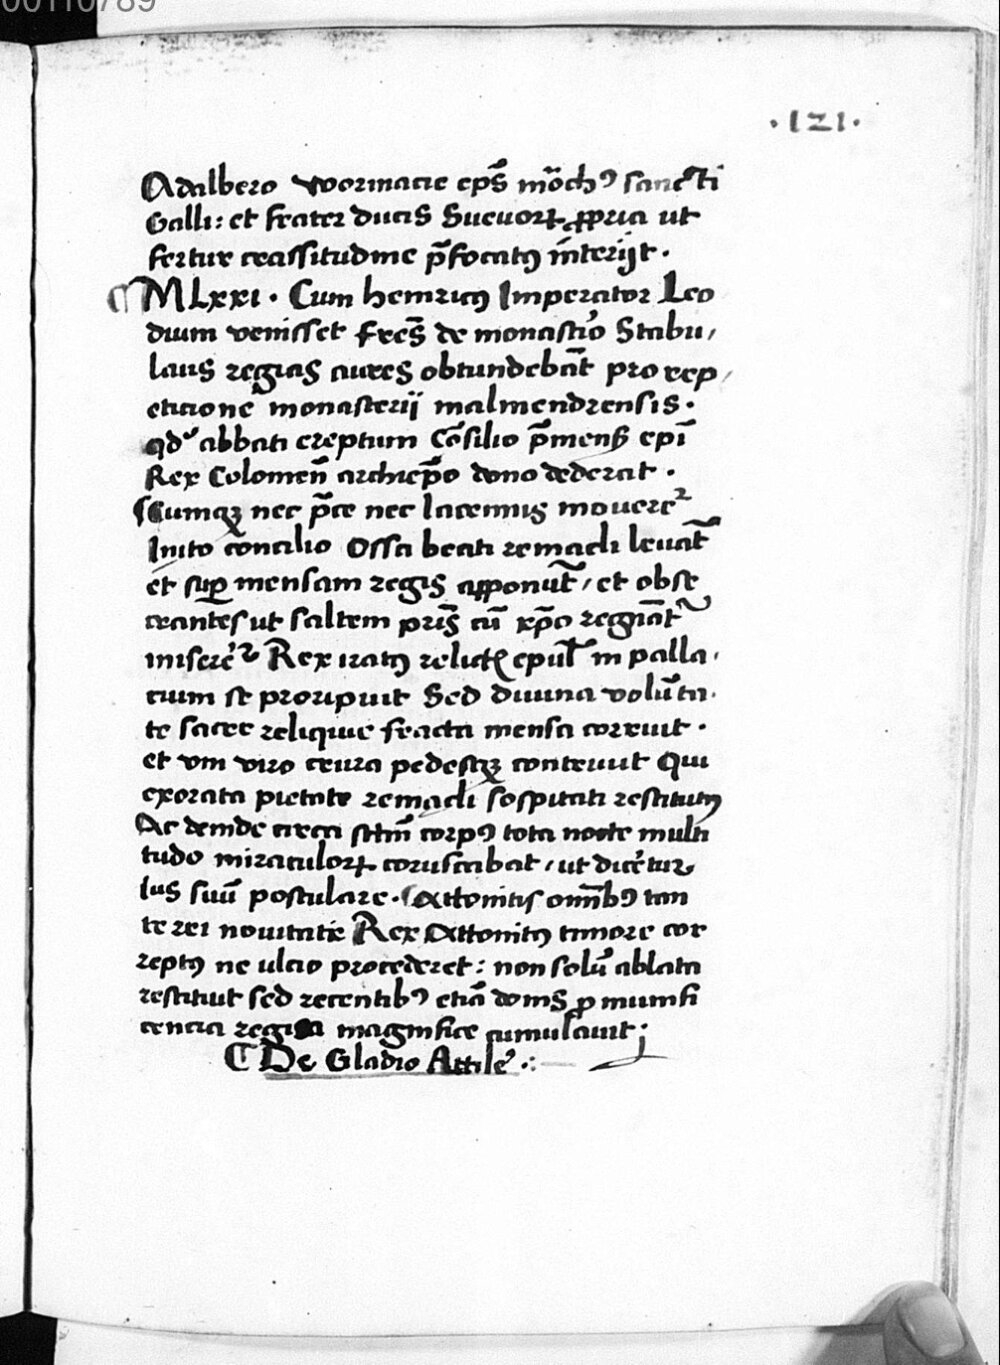 00110789
·121·
Adalbero wormacie ep̄s mōch9 sancti
Galli: et frater ducis Sueuorꝝ ꝓpria ut
fertur crassitudine p̄focatꝰ īnterijt.
¶ MLxxi. Cum heinricꝰ Imperator Leo
dium venisset fr̄es de monastīo Stabu/
laus regias aures obtundebāt pro rep/
eticione monasterij malmendrensis.
qd' abbati ereptum cōsilio p̄mens̄ epī
Rex Coloniēn archiep̄o dono dederat.
Cumqꝫ nec p̄ce nec lacrimis mouere᷑
Inito concilio Ossa beati remacli leuāt
et suꝑ mensam regis apponūt / et obse
crantes ut saltem pr̄is cū xp̄o regnāt᷑
misere᷑ Rex iratꝰ relictꝭ epul' in palla,
cium se proripuit Sed diuina volūta.
te sacre reliquie fracta mensa corruit.
et vni viro crura pedesqꝫ contriuit Qui
exorata pietate remacli sospitati restitutꝰ
Ac deinde circa sctm̄ corpꝰ tota nocte multi
tudo miraculorꝝ coruscabat / ut dicēretur
Ius suū postulare. Attonitis omībꝰ tan
te rei nouitate Rex Attonitꝰ timore cor
reptꝰ ne ulcio procederet: non solū ablata
restituit sed recentibꝰ etiā donis ꝓ munifi
cencia regia magnifice cumulauit;
¶ De Gladio Attile.